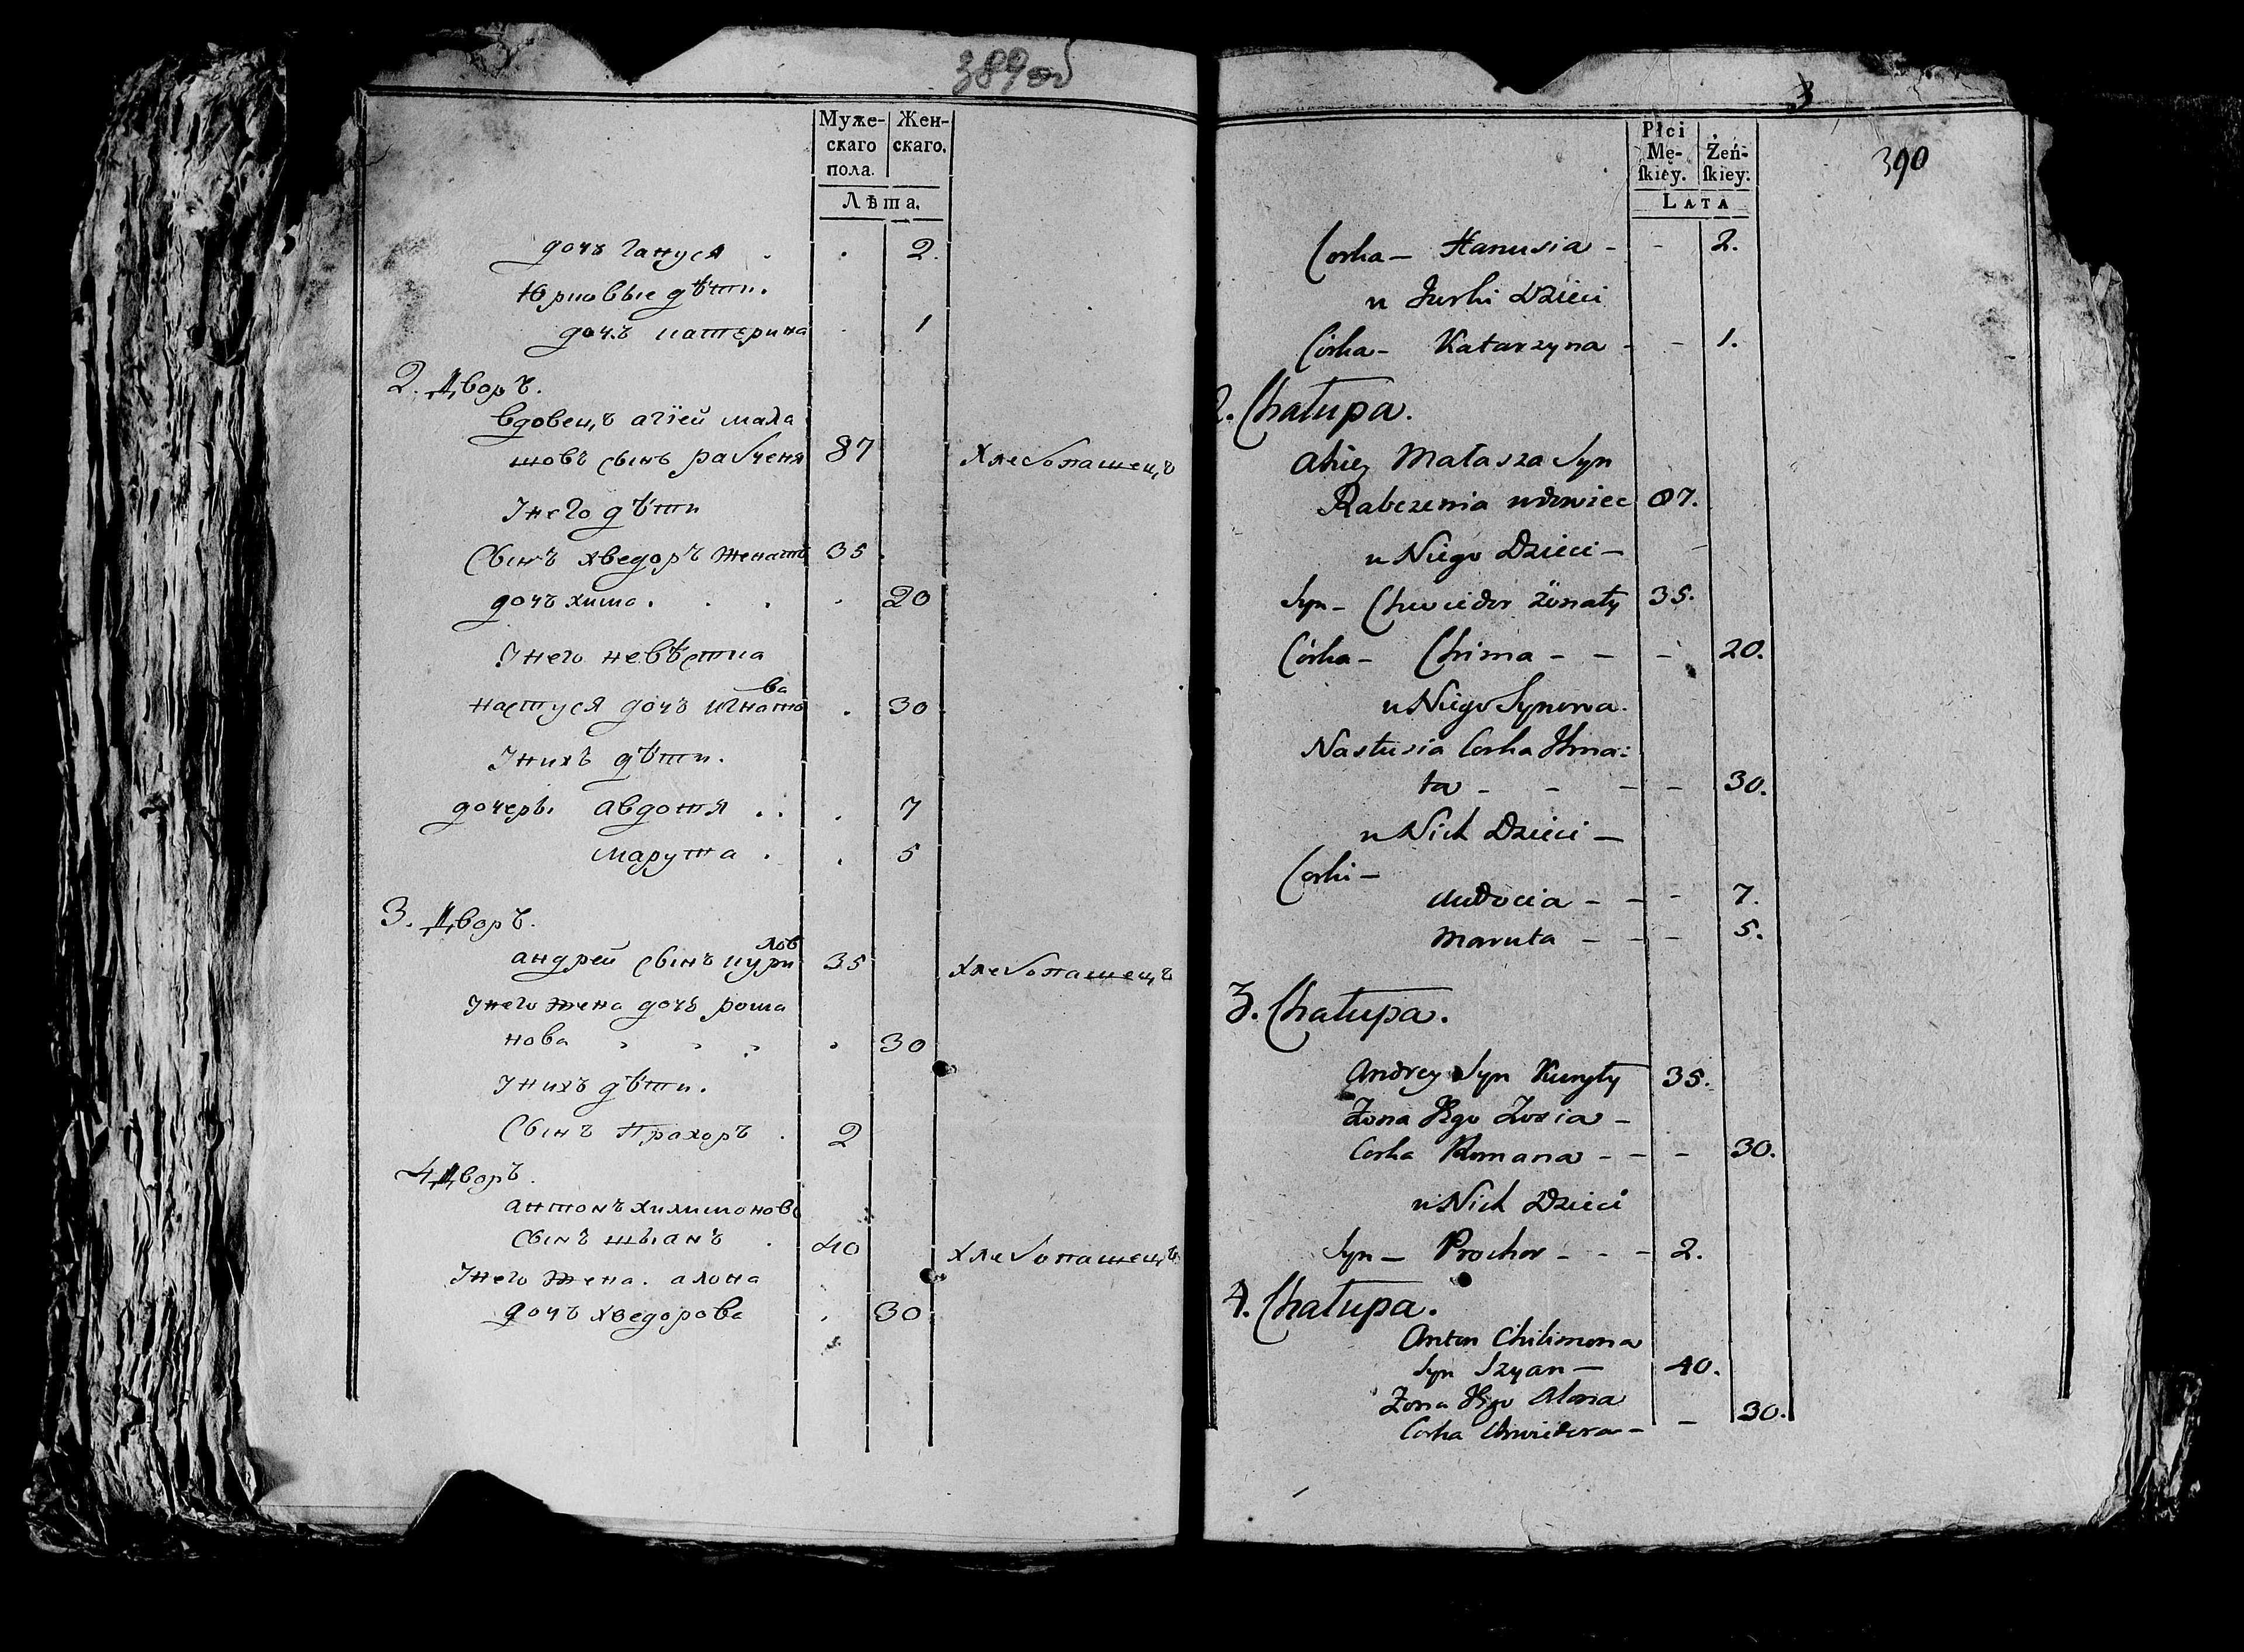 389 об
Муже- Жен-
скаго скаго.
пола.
Лѣта.
дочъ гануся . . 2.
Юрковые дѣти.
дочъ катерина . 1
2. Дворъ.
вдовецъ агїей мала
шовъ сынъ рабченя 87 Хлебопашецъ
Унего дѣти
Сынъ хведоръ женатъ 35
дочъ хима . . . . 20
Унего невѣстка
настуся дочъ игнато
ва . 30
Унихъ дѣти.
дочеры авдотя . . . 7
марута . . 5
3. Дворъ.
андрей сынъ кури
лов 35 Хлебопашецъ
Унего жена дочъ рома
нова . . . . 30
Унихъ дѣти.
Сынъ Прахоръ . 2
4 Дворъ.
антонъ хилимоновъ
сынъ шыанъ . 40 Хлебопашецъ
Унего жена. алона
дочъ хведорова . 30
3
390
Płci Żeń-
Mę- skiey.
skiey.
LATA
Corka - Hanusia - - 2.
u Jurki Dzieci
Córka - Katarzyna - - 1.
2. Chałupa.
Ahiey Małasza Syn
Rabczenia wdowiec 87.
u Niego Dzieci -
Syn - Chwiedor żonaty 35.
Córka - Chima - - - 20.
u Niego Synowa.
Nastusia Corka Ihna:
ta - - - - 30.
u Nich Dzieci -
Corki -
Audocia - - - 7.
Maruta - - - 5.
3. Chałupa.
Andrey Syn Kuryły 35.
Żona Jego Zosia -
Corka Romana - - - 30.
u Nich Dzieci
Syn - Prochor - - - 2.
4. Chałupa.
Anton Chilimona
Syn Szyan - 40.
Żona Jego Alona
Corka Chwiedora - - 30.